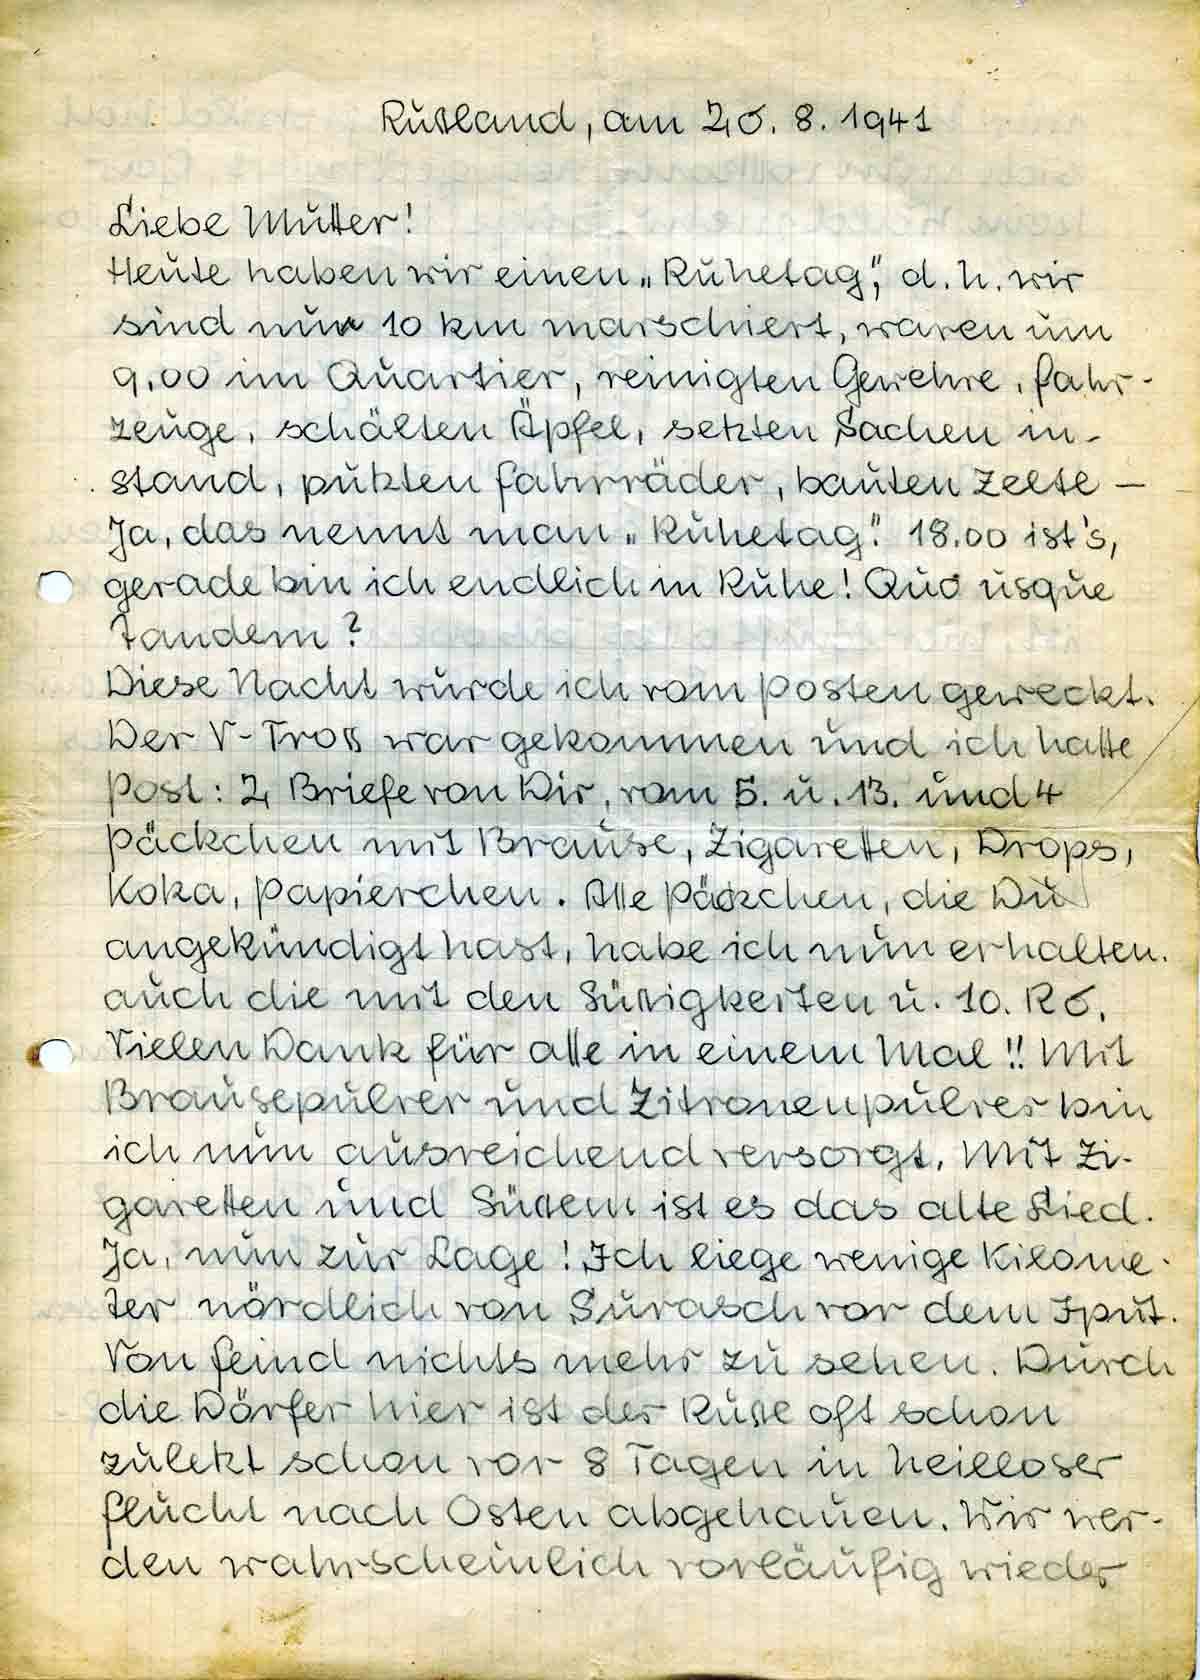 Rußland, am 20. 8. 1941
Liebe Mutter!
Heute haben wir einen „Ruhetag", d. h. wir
sind nur 10 km marschiert, waren um
9.00 im Quartier, reinigten Gewehre, Fahr-
zeuge, schälten Äpfel, setzten Sachen in-
stand, putzten Fahrräder, bauten Zelte –
Ja, das nennt man „Ruhetag". 18.00 ist's,
gerade bin ich endlich in Ruhe! Quo usque
tandem?
Diese Nacht wurde ich vom Posten geweckt.
Der V-Troß war gekommen und ich hatte
Post: 2 Briefe von Dir, vom 5. u. 13. und 4
Päckchen mit Brause, Zigaretten, Drops,
Koka, Papierchen. Alle Päckchen, die Du
angekündigt hast, habe ich nun erhalten.
auch die mit den Süßigkeiten u. 10. R6.
Vielen Dank für alle in einem Mal!! Mit
Brausepulver und Zitronenpulver bin
ich nun ausreichend versorgt. Mit Zi-
garetten und Süßem ist es das alte Lied.
Ja, nun zur Lage! Ich liege wenige Kilome-
ter nördlich von Surasch vor dem Iput.
Von Feind nichts mehr zu sehen. Durch
die Dörfer hier ist der Russe oft schon
zuletzt schon vor 8 Tagen in heilloser
Flucht nach Osten abgehauen. Wir wer-
den wahrscheinlich vorläufig wieder